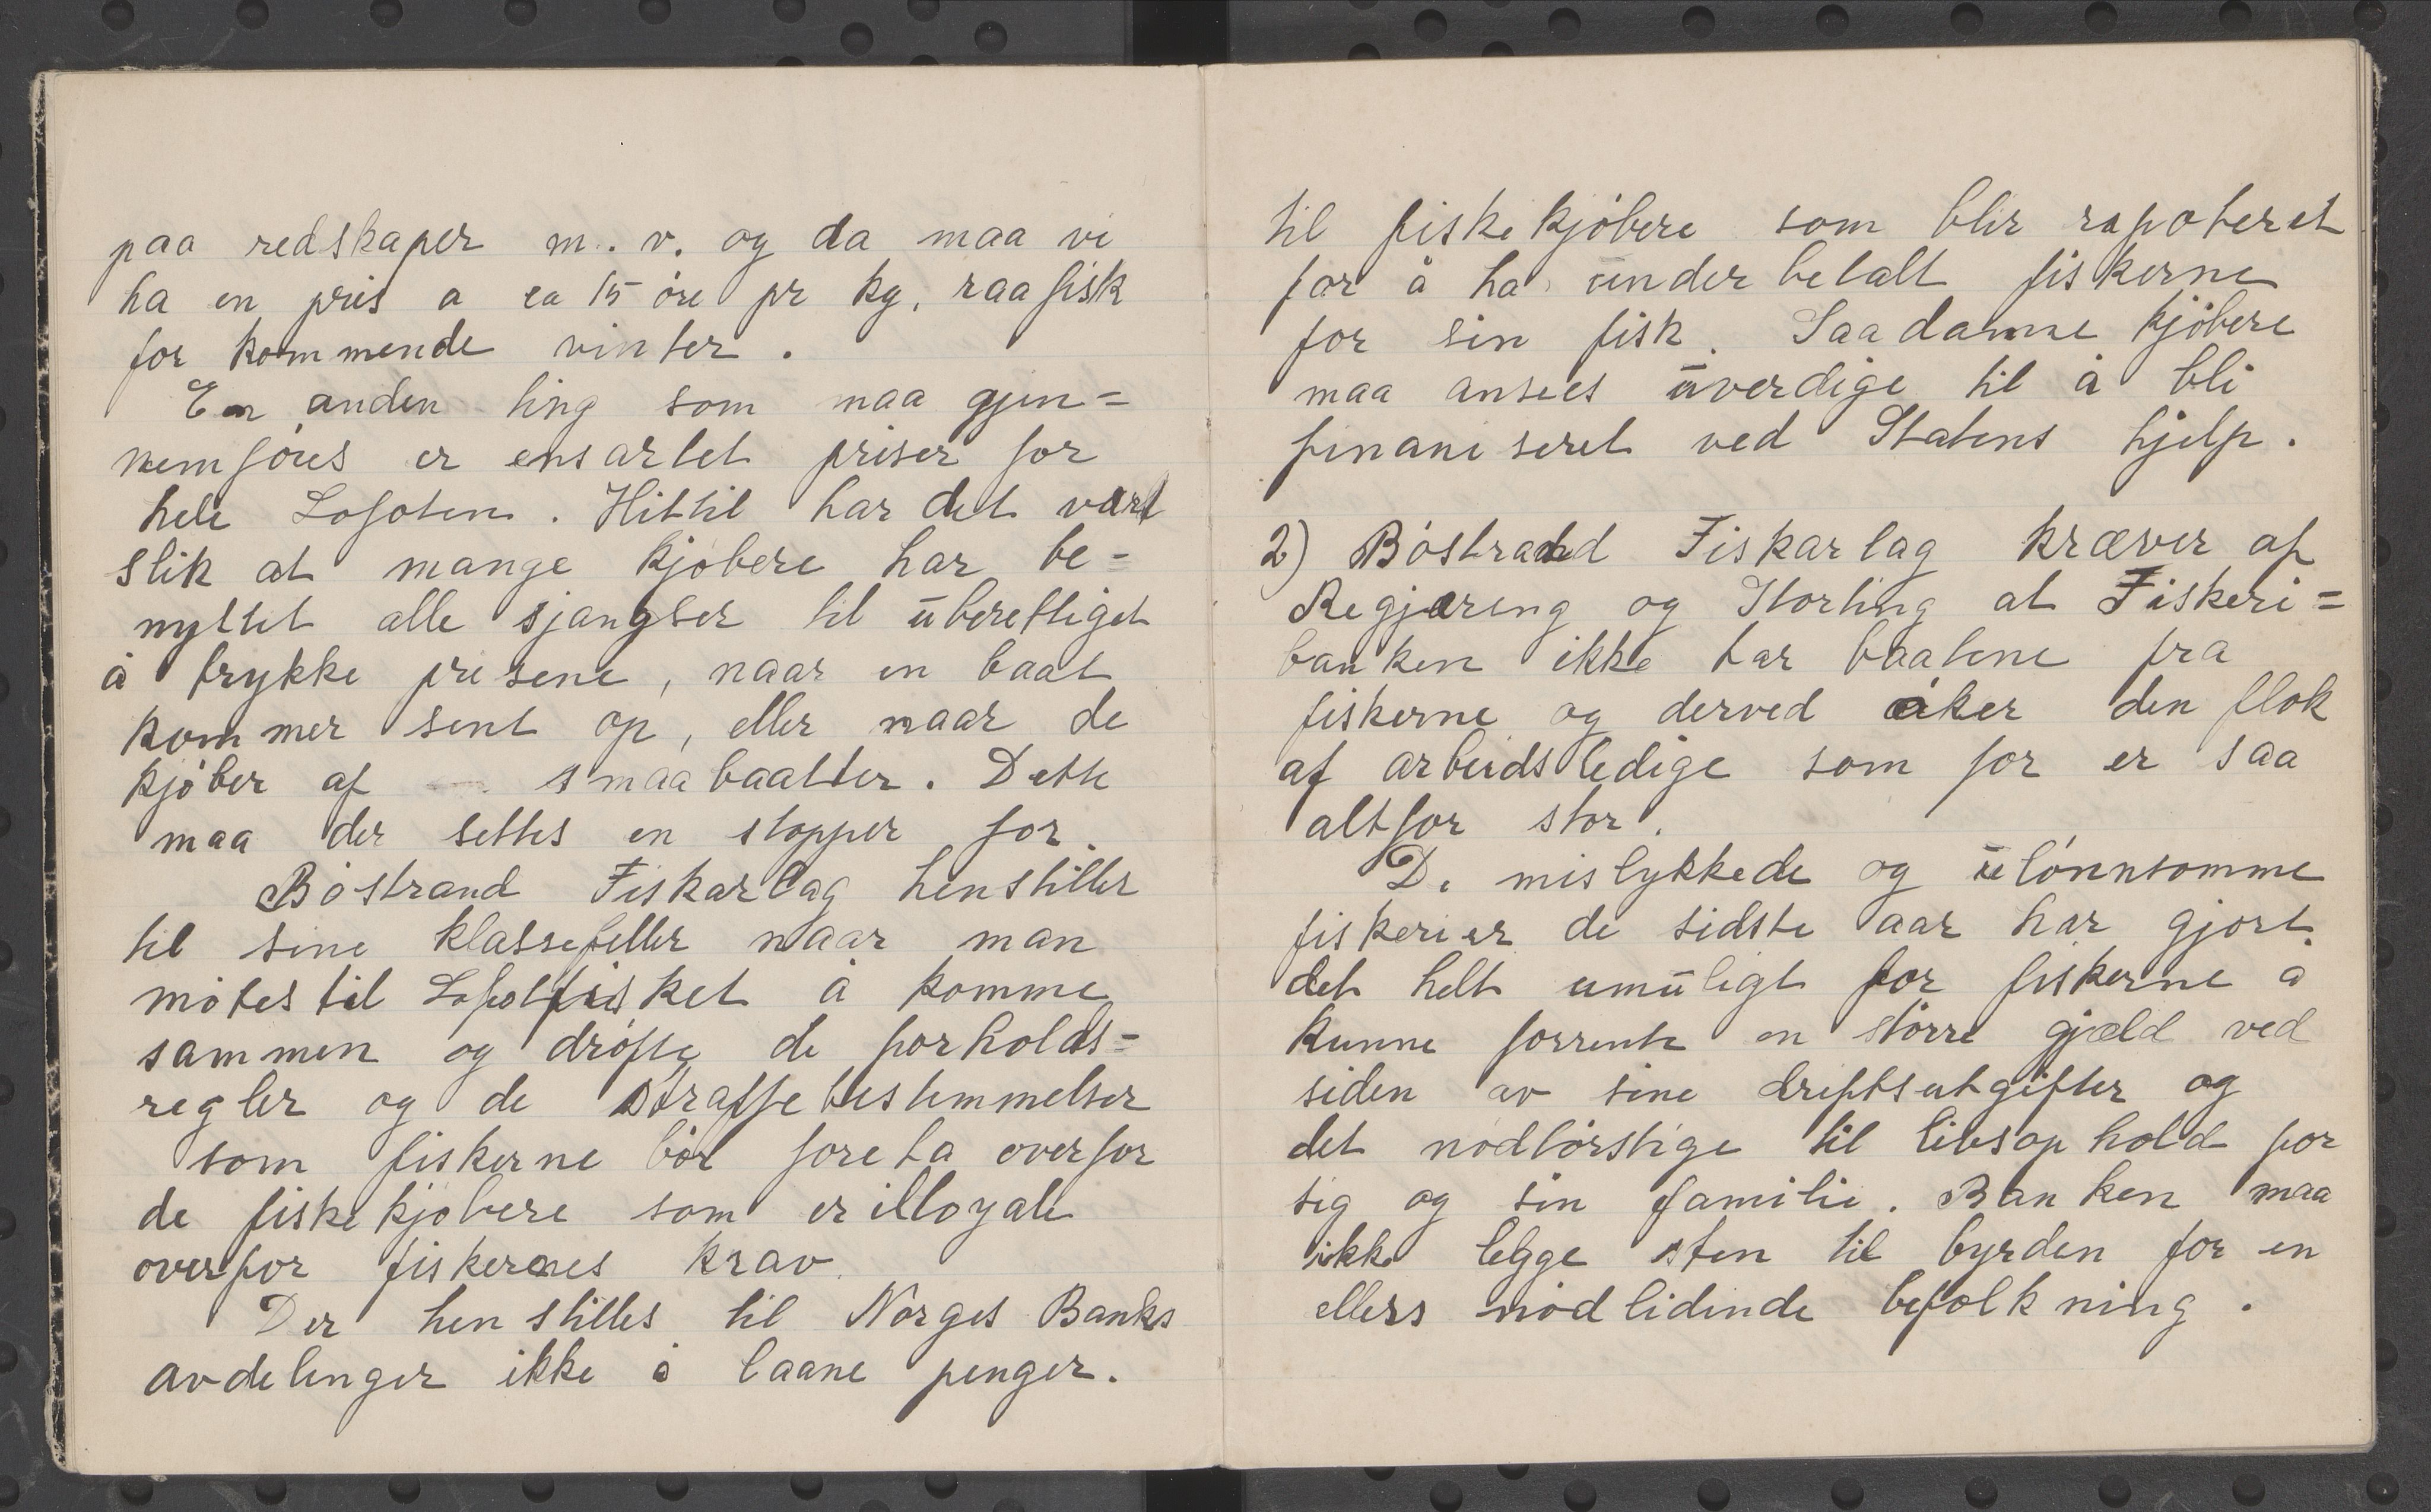 paa redskaper m.v. og da maa vi
ha en pris a ca 15 øre pr kg. raafisk
for kommende vinter.
En anden ting som maa gjen=
nemføres er ensartet priser for
hele Lofoten. Hittil har det vært
slik at mange kjøbere har be=
nyttet alle sjangser til uberettiget
å trykke prisene, naar en baat
kommer sent op, eller naar de
kjøber af smaabaatter. Dette
maa der settes en stopper for.
Bøstrand Fiskarlag henstiller
til sine klassefeller naar man
møtes til Lofotfisket å komme
sammen og drøfte de forholds=
regler og de straffebestemmelser
som fiskerne bør foreta overfor
de fiskekjøbere som er illoyale
overfor fiskernes krav.
Der henstilles til Norges Banks
avdelinger ikke å laane penger.
til fiskekjøbere som blir rapoteret
for å ha underbetalt fiskerne
for sin fisk. Saadanne kjøbere
maa ansees uverdige til å bli
finaniseret ved Statens hjelp.
2) Bøstrand Fiskarlag kræver af
Regjering og Storting at Fiskeri=
banken ikke tar baatene fra
fiskerne og derved øker den flok
af arbeidsledige som før er saa
altfor stor.
De mislykkede og ulønnsomme
fiskerier de sidste aar har gjort
det helt umuligt for fiskerne å
kunne forrente en større gjæld ved
siden av sine driftsutgifter og
det nødtørftige til livsophold for
sig og sin familie. Banken maa
ikke legge sten til byrden for en
ellers nødlidende befolkning.